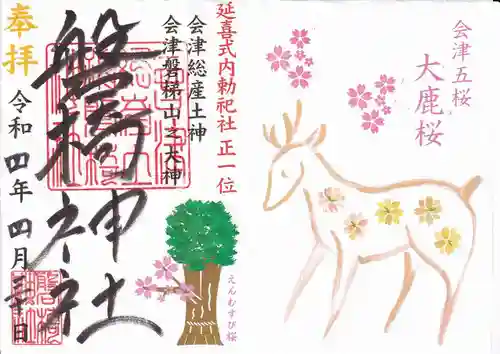 会津五桜
大鹿桜
延喜式内勅祀社 正一位
会津総産土神
会津磐梯山之大神
磐椅神社
奉拝
令和四年四月三十日
えんむすび桜